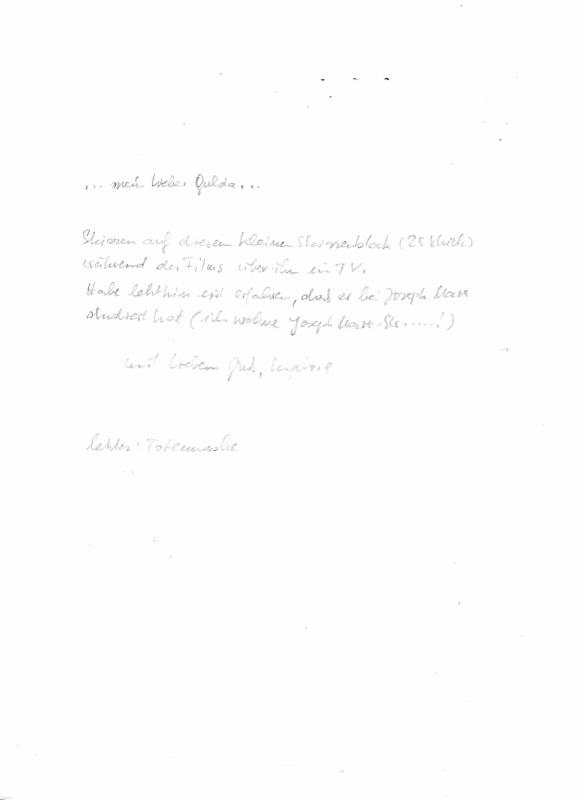 ... mein lieber Gulda...
Skizzen auf diesem kleinen Skizzenblock (25 Stück)
während des Films über ihn in TV.
Habe letzthin erst erfahren, daß er bei Joseph Marx
studiert hat (ich wohne Joseph Marx-Str.....!)
mit lieben Gruß,
letztes: Totenmaske